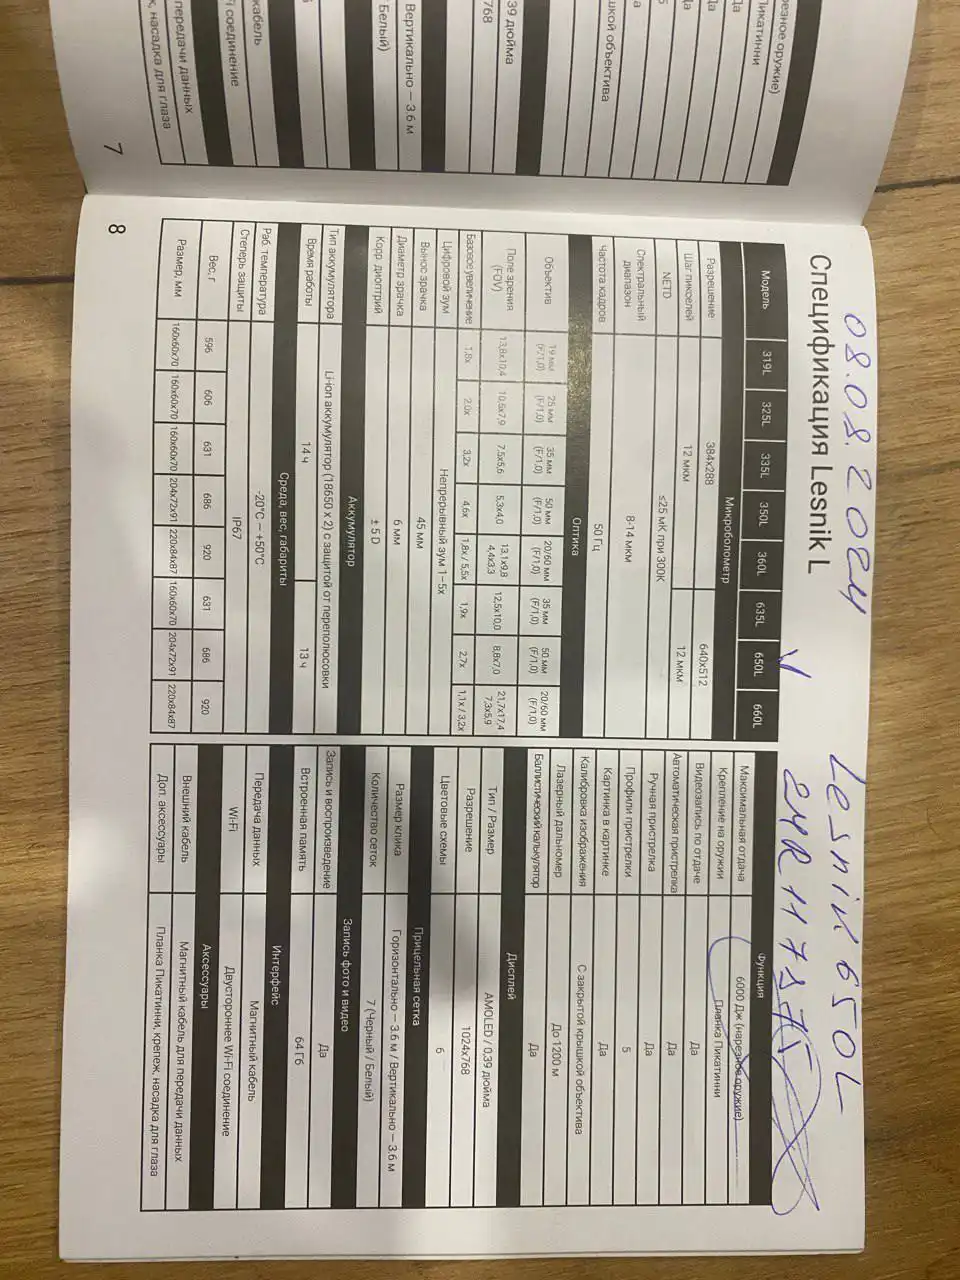 резное оружие)
Пикатинни
Да
Да
Да
5
а
шкой объектива
39 дюйма
768
Вертикально — 3.6 м
Белый)
кабель
соединение
передачи данных
к, насадка для глаза
7
08.08.2024 Lesnik 650L
Спецификация Lesnik L
Модель 319L 325L 335L 350L 360L 635L 650L 660L
Микроболометр
Разрешение 384x288 640x512
Шаг пикселей 12 мкм 12 мкм
NETD ≤25 мК при 300K
Спектральный диапазон 8-14 мкм
Частота кадров 50 Гц
Оптика
Объектив 19 мм (F/1,0) 25 мм (F/1,0) 35 мм (F/1,0) 50 мм (F/1,0) 20/60 мм (F/1,0) 35 мм (F/1,0) 50 мм (F/1,0) 20/60 мм (F/1,0)
Поле зрения (FOV) 13,8x10,4 10,5x7,9 7,5x5,6 5,3x4,0 13,1x9,8 4,4x3,3 12,5x10,0 8,8x7,0 21,7x17,4 7,3x5,9
Базовое увеличение 1,8x 2,0x 3,2x 4,6x 1,8x / 5,5x 1,9x 2,7x 1,1x / 3,2x
Цифровой зум Непрерывный зум 1–5x
Вынос зрачка 45 мм
Диаметр зрачка 6 мм
Корр. диоптрий ± 5 D
Аккумулятор
Тип аккумулятора Li-ion аккумулятор (18650 x 2) с защитой от переполюсовки
Время работы 14 ч 13 ч
Среда, вес, габариты
Раб. температура -20°C — +50°C
Степерь защиты IP67
Вес, г 596 606 631 686 920 631 686 920
Размер, мм 160x60x70 160x60x70 160x60x70 204x72x91 220x84x87 160x60x70 204x72x91 220x84x87
Функция
Максимальная отдача 6000 Дж (нарезное оружие)
Крепление на оружии Планка Пикатинни
Видеозапись по отдаче Да
Автоматическая пристрелка Да
Ручная пристрелка Да
Профили пристрелки 5
Картинка в картинке Да
Калибровка изображения С закрытой крышкой объектива
Лазерный дальномер До 1200 м
Баллистический калькулятор Да
Дисплей
Тип / Размер AMOLED / 0,39 дюйма
Разрешение 1024x768
Цветовые схемы 6
Прицельная сетка
Размер клика Горизонтально — 3.6 м / Вертикально — 3.6 м
Количество сеток 7 (Черный / Белый)
Запись фото и видео
Запись и воспроизведение Да
Встроенная память 64 Гб
Интерфейс
Передача данных Магнитный кабель
Wi-Fi Двустороннее Wi-Fi соединение
Аксессуары
Внешний кабель Магнитный кабель для передачи данных
Доп. аксессуары Планка Пикатинни, крепеж, насадка для глаза
8